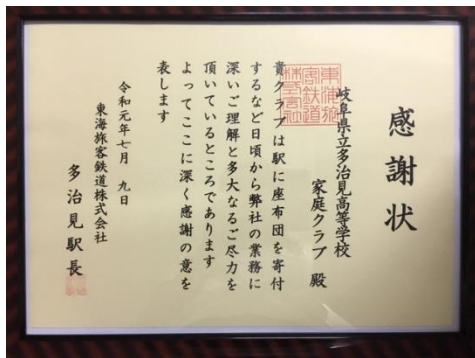 感謝状
岐阜県立多治見高等学校
家庭クラブ 殿
貴クラブは駅に座布団を寄付
するなど日頃から弊社の業務に
深いご理解と多大なるご尽力を
頂いているところであります
よってここに深く感謝の意を
表します
令和元年七月 九日
東海旅客鉄道株式会社
多治見駅長
東海旅
客鉄道
株式会社